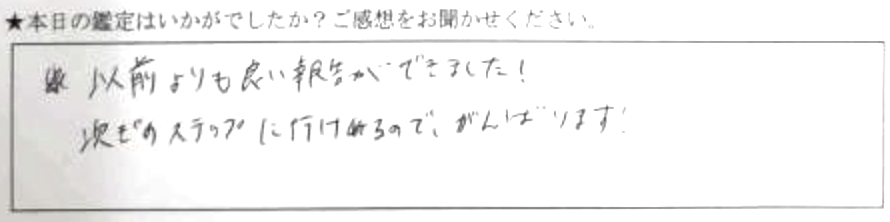 ★本日の鑑定はいかがでしたか？ご感想をお聞かせください。
以前よりも良い報告ができました！
次のステップに行けるので、がんばります！